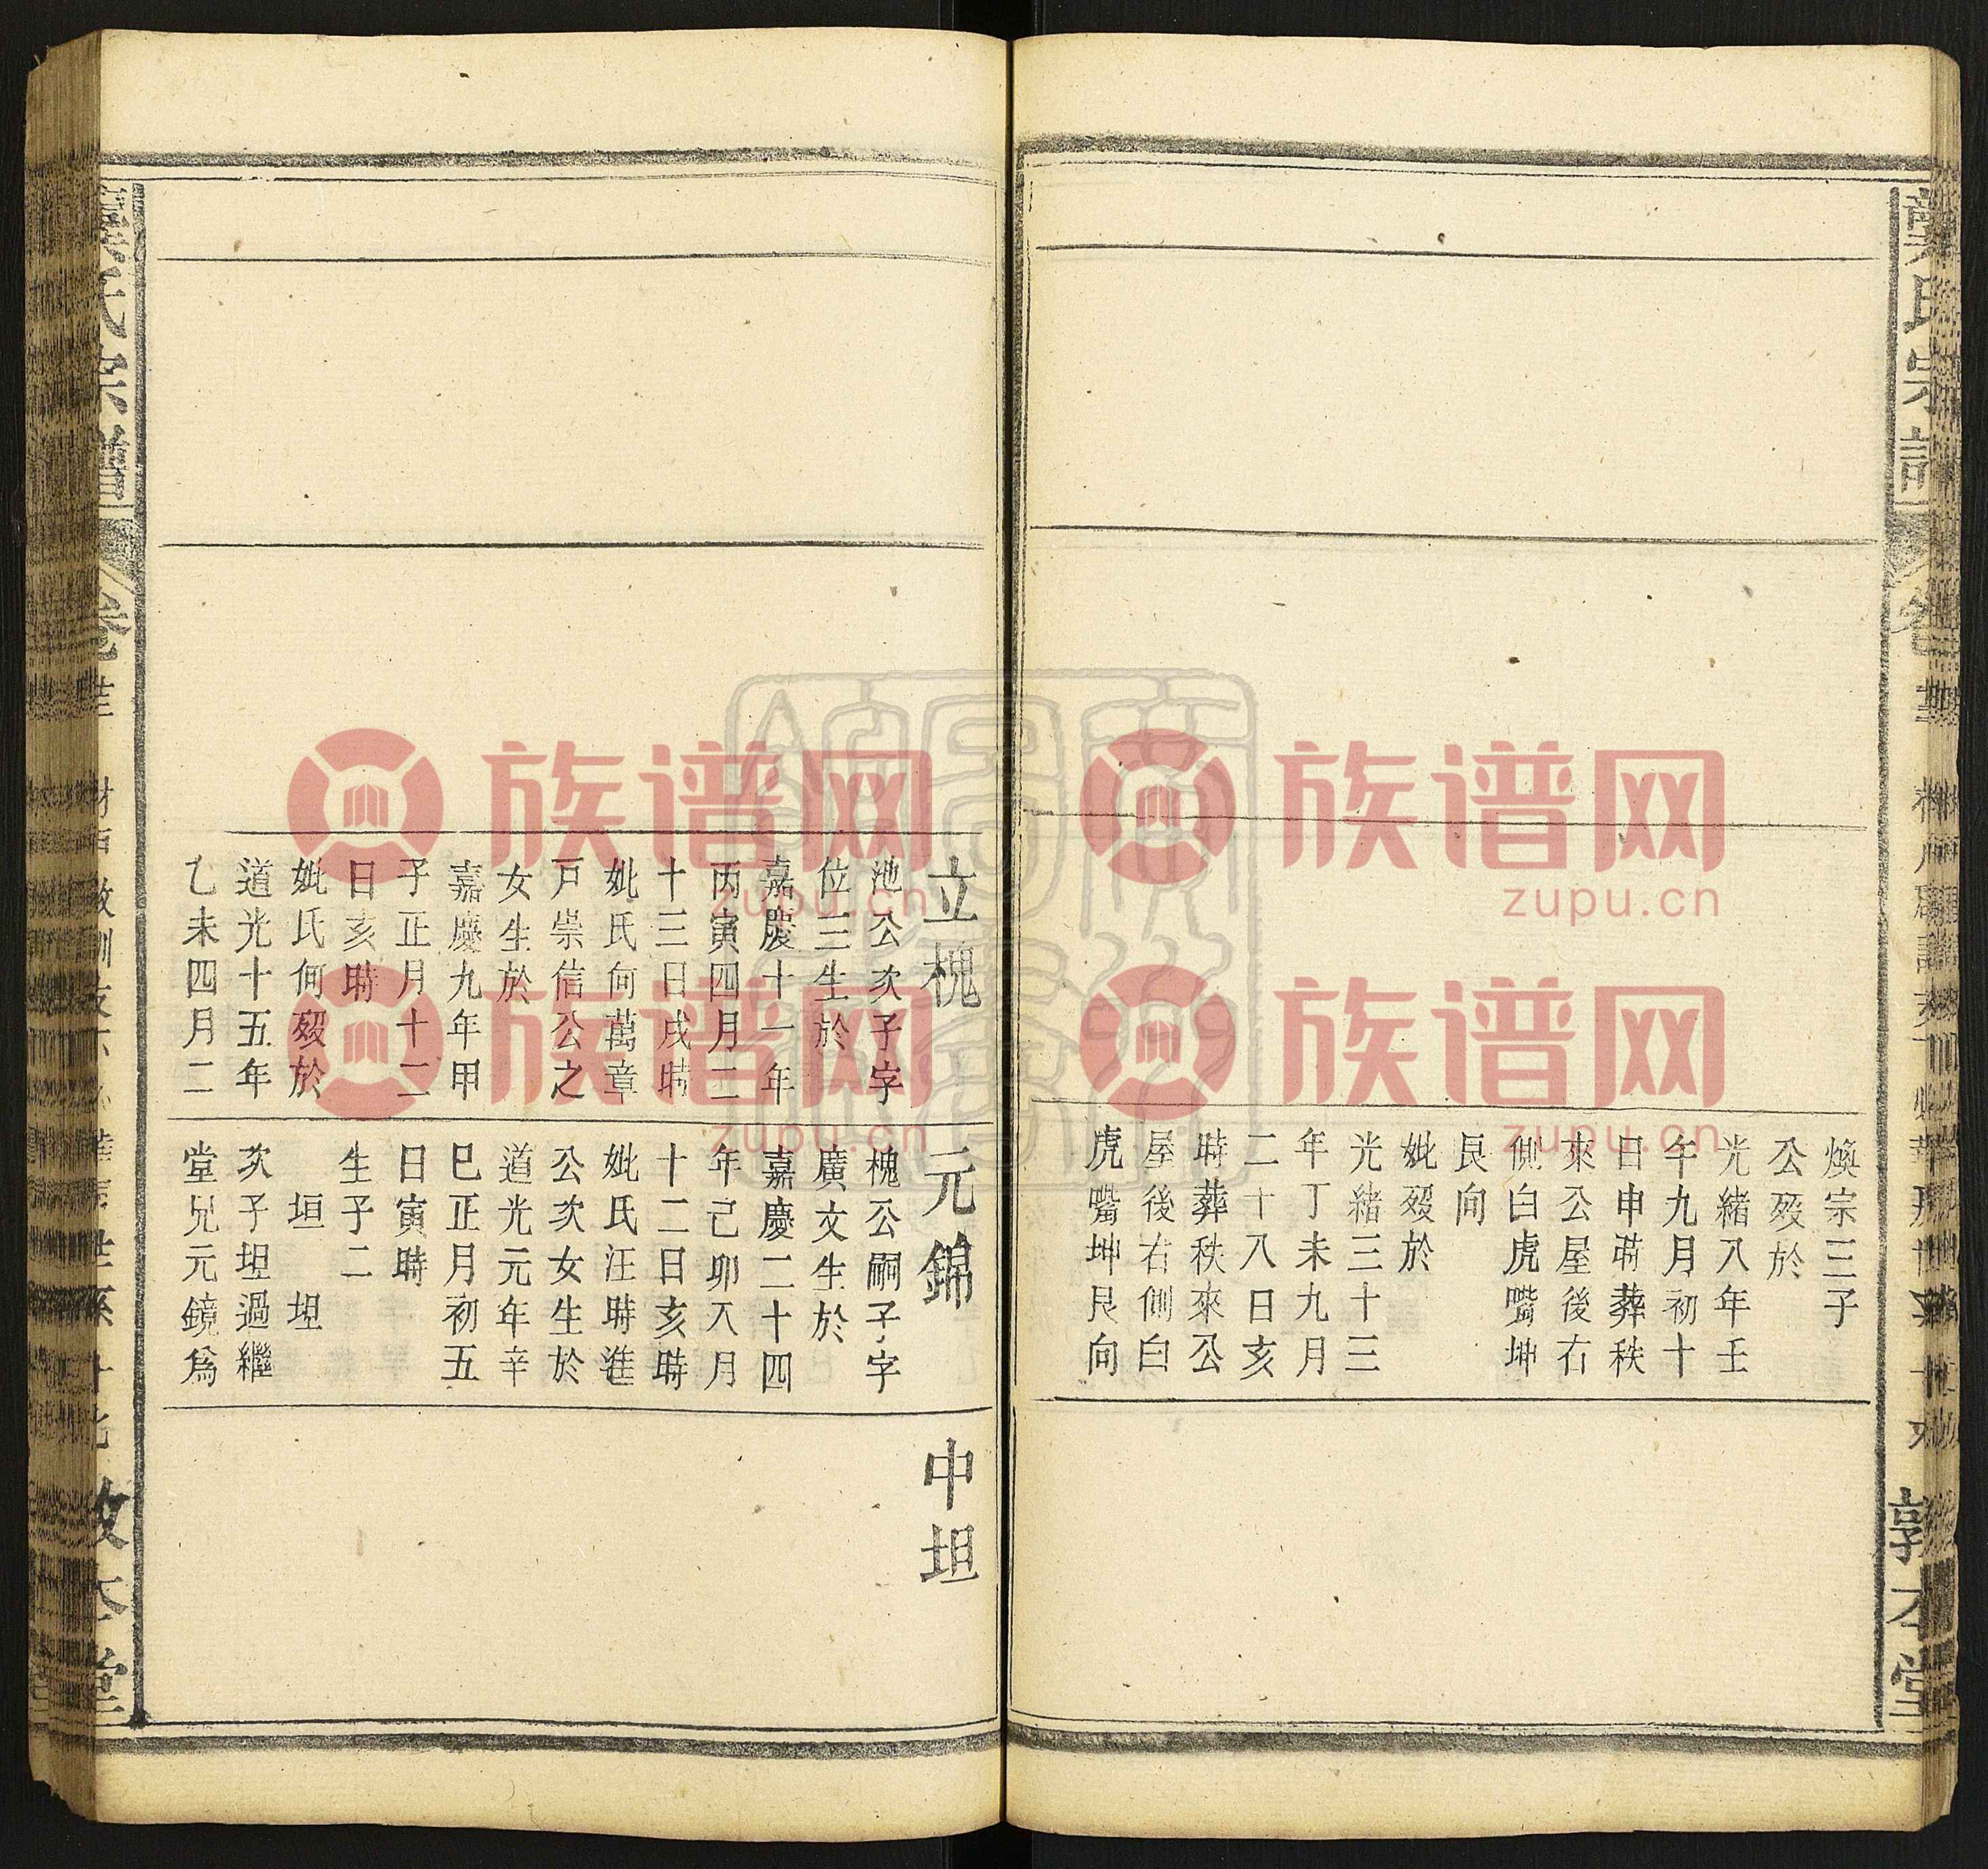 氏宗譜
卷
敦本堂
煥宗三子
公歿於
光緒八年壬
午九月初十
日申時葬秩
來公屋後右
側白虎嘴坤
艮向
妣歿於
光緒三十三
年丁未九月
二十八日亥
時葬秩來公
屋後右側白
虎嘴坤艮向
立槐
池公次子字
位三生於
嘉慶十一年
丙寅四月二
十三日戌時
妣氏何萬章
戸崇信公之
女生於
嘉慶九年甲
子正月十二
日亥時
妣氏何歿於
道光十五年
乙未四月二
元錦
槐公嗣子字
廣文生於
嘉慶二十四
年己卯八月
十二日亥時
妣氏汪時進
公次女生於
道光元年辛
巳正月初五
日寅時
生子二
垣 坦
次子坦過繼
堂兄元鏡爲
中垣
氏宗譜
卷
敦本堂
族谱网
zupu.cn
族谱网
zupu.cn
族谱网
zupu.cn
族谱网
zupu.cn